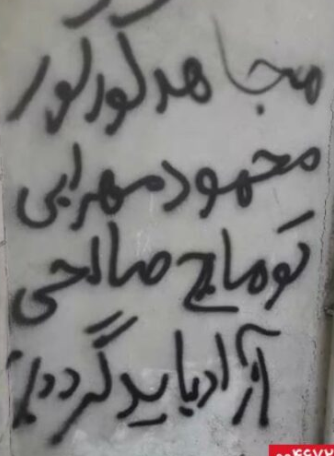 مجاهد کورکور
محمود مهرابی
توماج صالحی
آزاد باید گردد!